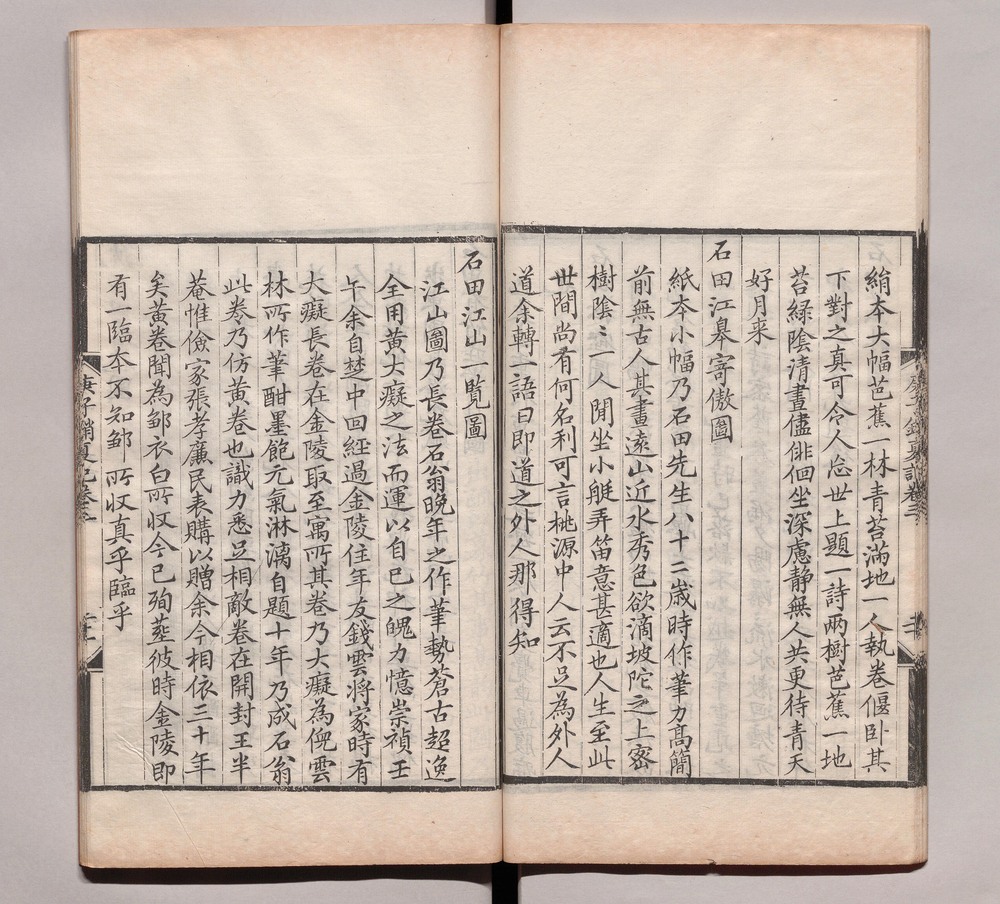 絹本大幅芭蕉一林青苔滿地一人執卷偃卧其
下對之真可令人忘世上題一詩兩樹芭蕉一地
苔緑陰清晝儘徘徊坐深慮静無人共更待青天
好月来
石田江皋寄傲圖
紙本小幅乃石田先生八十二歳時作筆力髙簡
前無古人其畫遠山近水秀色欲滴坡陀之上宻
樹陰〻一人閒坐小艇弄笛意甚適也人生至此
世間尚有何名利可言桃源中人云不足為外人
道余轉一語曰即道之外人那得知
石田江山一覧圖
江山圖乃長卷石翁晚年之作筆勢蒼古超逸
全用黄大癡之法而運以自己之魄力憶崇禎壬
午余自楚中回經過金陵住年友錢雲将家時有
大癡長卷在金陵取至寓所其卷乃大癡為倪雲
林所作筆酣墨飽元氣淋漓自題十年乃成石翁
此卷乃仿黄卷也識力悉足相敵卷在開封王半
菴惟儉家張孝廉民表購以贈余今相依三十年
矣黄卷聞為邹衣白所收今已殉塟彼時金陵即
有一臨本不知邹所收真乎臨乎
庚子銷夏記卷三